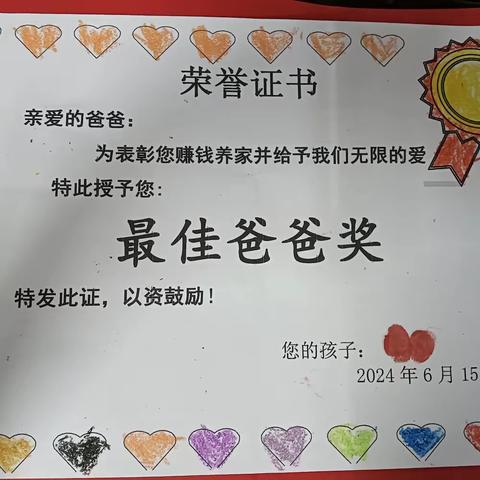 荣誉证书
亲爱的爸爸：
为表彰您赚钱养家并给予我们无限的爱
特此授予您：
最佳爸爸奖
特发此证，以资鼓励！
您的孩子：
2024年6月15